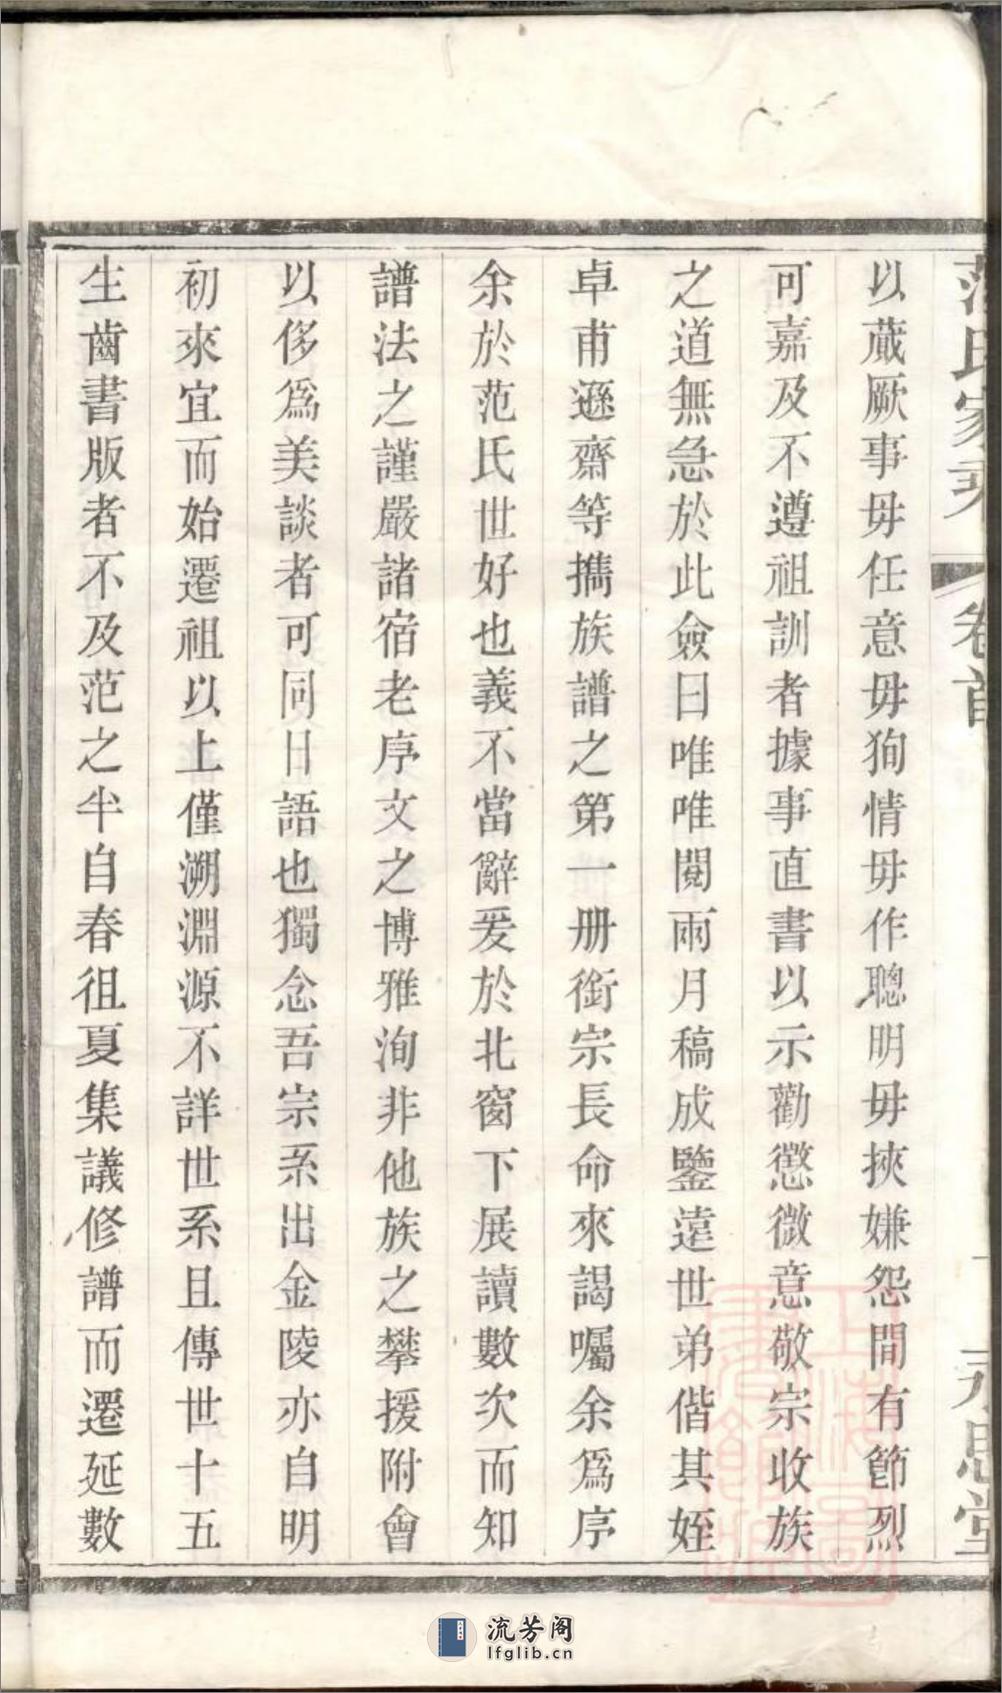 范氏家乘
卷首
永思堂
以蕆厥事毋任意毋狥情毋作聰明毋挾嫌怨間有節烈
可嘉及不遵祖訓者據事直書以示勸懲微意敬宗收族
之道無急於此僉曰唯唯閱兩月稿成鑒遠世弟偕其姪
卓甫遜齋等攜族譜之第一册銜宗長命來謁囑余爲序
余於范氏世好也義不當辭爰於北窗下展讀數次而知
譜法之謹嚴諸宿老序文之博雅洵非他族之攀援附會
以侈爲美談者可同日語也獨念吾宗系出金陵亦自明
初來宜而始遷祖以上僅溯淵源不詳世系且傳世十五
生齒書版者不及范之半自春徂夏集議修譜而遷延數
上海圖書館藏
流芳阁
lfglib.cn